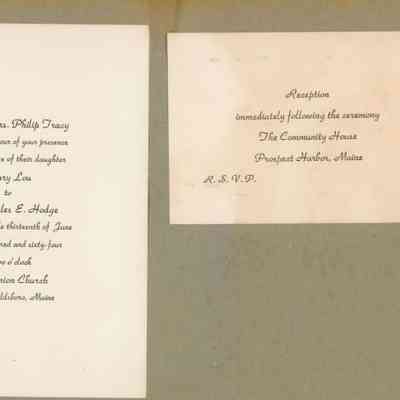 rs. Philip Tracy
our of your presence
e of their daughter
ry Lou
to
les E. Hodge
thirteenth of June
red and sixty-four
o'clock
nion Church
ldsboro, Maine
Reception
immediately following the ceremony
The Community House
Prospect Harbor, Maine
R. S. V. P.